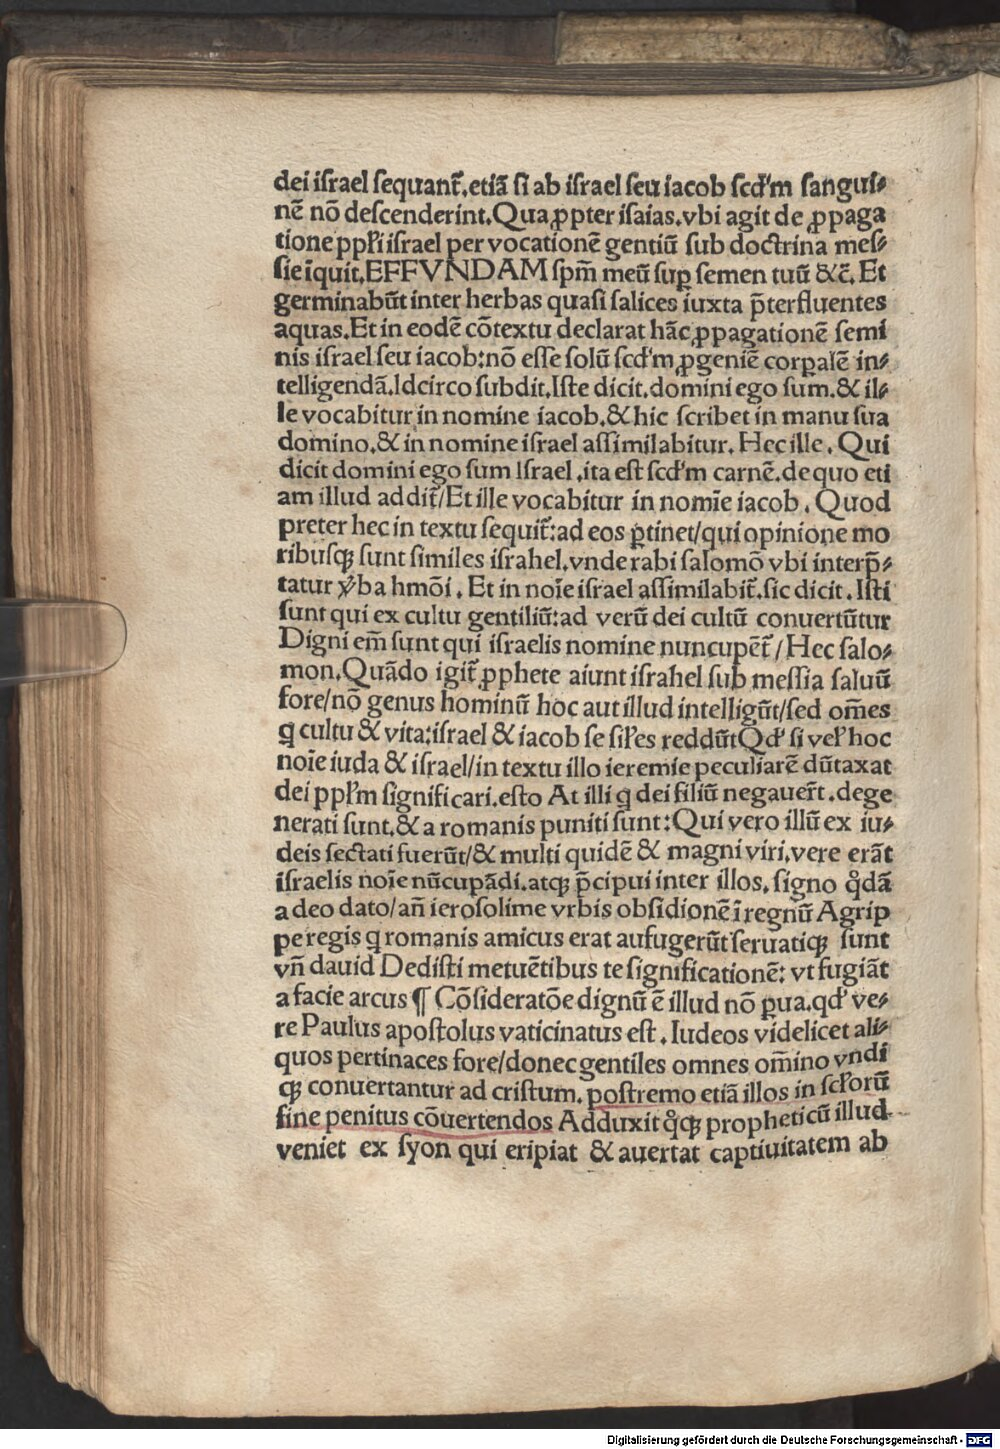 dei iſrael ſequant᷑.etiā ſi ab iſrael ſeu iacob ſcđm ſangui⸗
nē nō deſcenderint.Qua ꝓpter iſaias.vbi agit de ꝓpaga
tione ppłi iſrael per vocationē gentiū ſub doctrina meſ⸗
ſie īquit.EFFVNDAM ſpm̄ meū ſuꝑ ſemen tuū &c̄. Et
germinabūt inter herbas quaſi ſalices iuxta p̄terfluentes
aquas.Et in eodē cōtextu declarat hāc ꝓpagationē ſemi
nis iſrael ſeu iacob:nō eſſe ſolū ſcđm ꝓgeniē corꝑalē in⸗
telligendā.Idcirco ſubdit.Iſte dicit.domini ego ſum.& il⸗
le vocabitur in nomine iacob.& hic ſcribet in manu ſua
domino.& in nomine iſrael aſſimilabitur. Hec ille. Qui
dicit domini ego ſum Iſrael .ita eſt ſcđm carnē.de quo eti
am illud addit᷑/Et ille vocabitur in nomīe iacob. Quod
preter hec in textu ſequit᷑:ad eos ꝑtinet/qui opinione mo
ribuſqꝫ ſunt ſimiles iſrahel.vnde rabi ſalomō vbi interp̄⸗
tatur v̕ba hmōi. Et in noīe iſrael aſſimilabit᷑.ſic dicit.Iſti
ſunt qui ex cultu gentiliū:ad verū dei cultū conuertūtur
Digni em̄ ſunt qui iſraelis nomine nuncupēt᷑/Hec ſalo⸗
mon.Quādo igit᷑ ꝓphete aiunt iſrahel ſub meſſia ſaluū
fore/nō genus hominū hoc aut illud intelligūt/ſed om̄es
q̄ cultu & vita:iſrael & iacob ſe ſiłes reddūt Qđ ſi veł hoc
noīe iuda & iſrael/in textu illo ieremie peculiarē dūtaxat
dei ppłm ſignificari.eſto At illi q̄ dei filiū negauer᷑t.dege
nerati ſunt.& a romanis puniti ſunt:Qui vero illū ex iu⸗
deis ſectati fuerūt/& multi quidē & magni viri.vere erāt
iſraelis noīe nūcupādi.atqꝫ p̄cipui inter illos. ſigno qͦdā
a deo dato/an̄ ieroſolime vrbis obſidionē ī regnū Agrip
pe regis q̄ romanis amicus erat aufugerūt ſeruatiqꝫ ſunt
vn̄ dauid Dediſti metuētibus te ſignificationē: vt fugiāt
a facie arcus ¶ Cōſideratōe dignū ē illud nō ꝑua.qđ ve⸗
re Paulus apoſtolus vaticinatus eſt. Iudeos videlicet ali⸗
quos pertinaces fore/donec gentiles omnes om̄ino vndi
qꝫ conuertantur ad criſtum. poſtremo etiā illos in ſcłorū
fine penitus cōuertendos Adduxit qͦqꝫ propheticū illud
veniet ex ſyon qui eripiat & auertat captiuitatem ab
Digitalisierung gefördert durch die Deutsche Forschungsgemeinschaft - DFG